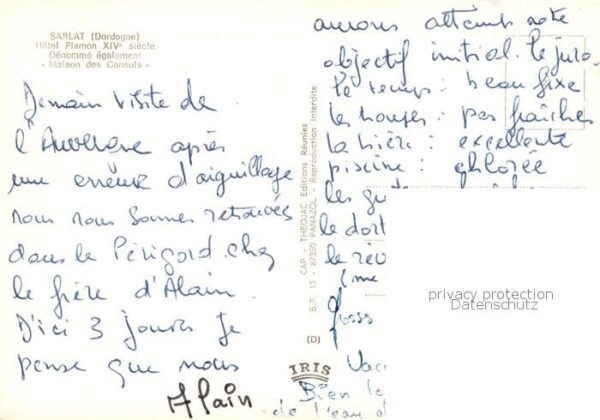 SARLAT (Dordogne)
Hôtel Plamon XIVe siècle
Dénommé également
« Maison des Consuls »
Demain visite de
l'Auvergne après
une erreur d'aiguillage
nous nous sommes retrouvés
dans le Périgord chez
le frère d'Alain.
D'ici 3 jours je
pense que nous
Alain
CAP - THEOJAC Editions Réunies
B.P. 15 - 87350 PANAZOL - Reproduction interdite
(D)
IRIS
aurons atteint notre
objectif initial. le jura.
le temps : beau fixe
les rouges : pas fraîches
la bière : excellente
piscine : chlorée
les
le dort
le
gross
Vac
Bien le
de l'eau d
privacy protection
Datenschutz